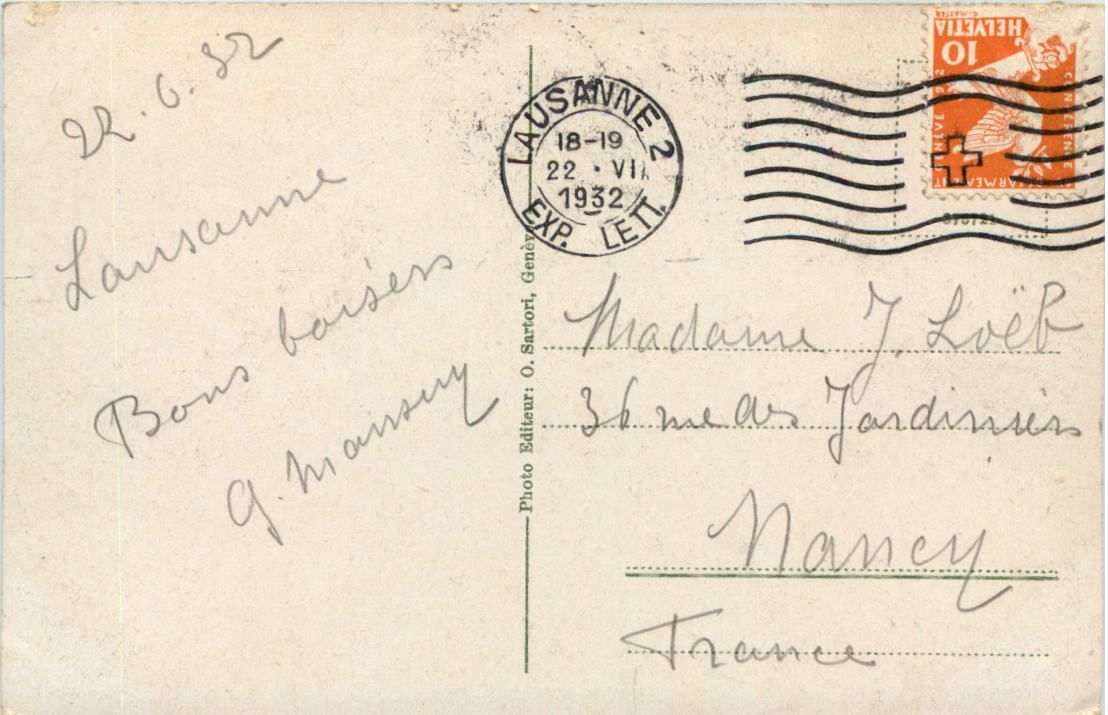 22.6.32
Lausanne
Bons baisers
G. Mansuy
Photo Editeur: O. Sartori, Genève
LAUSANNE 2
18-19
22 · VII
1932
EXP. LETT.
HELVETIA
10
GENÈVE 1932
CONFÉRENCE
DÉSARMEMENT
Madame J. Loëb
36 rue des Jardiniers
Nancy
France